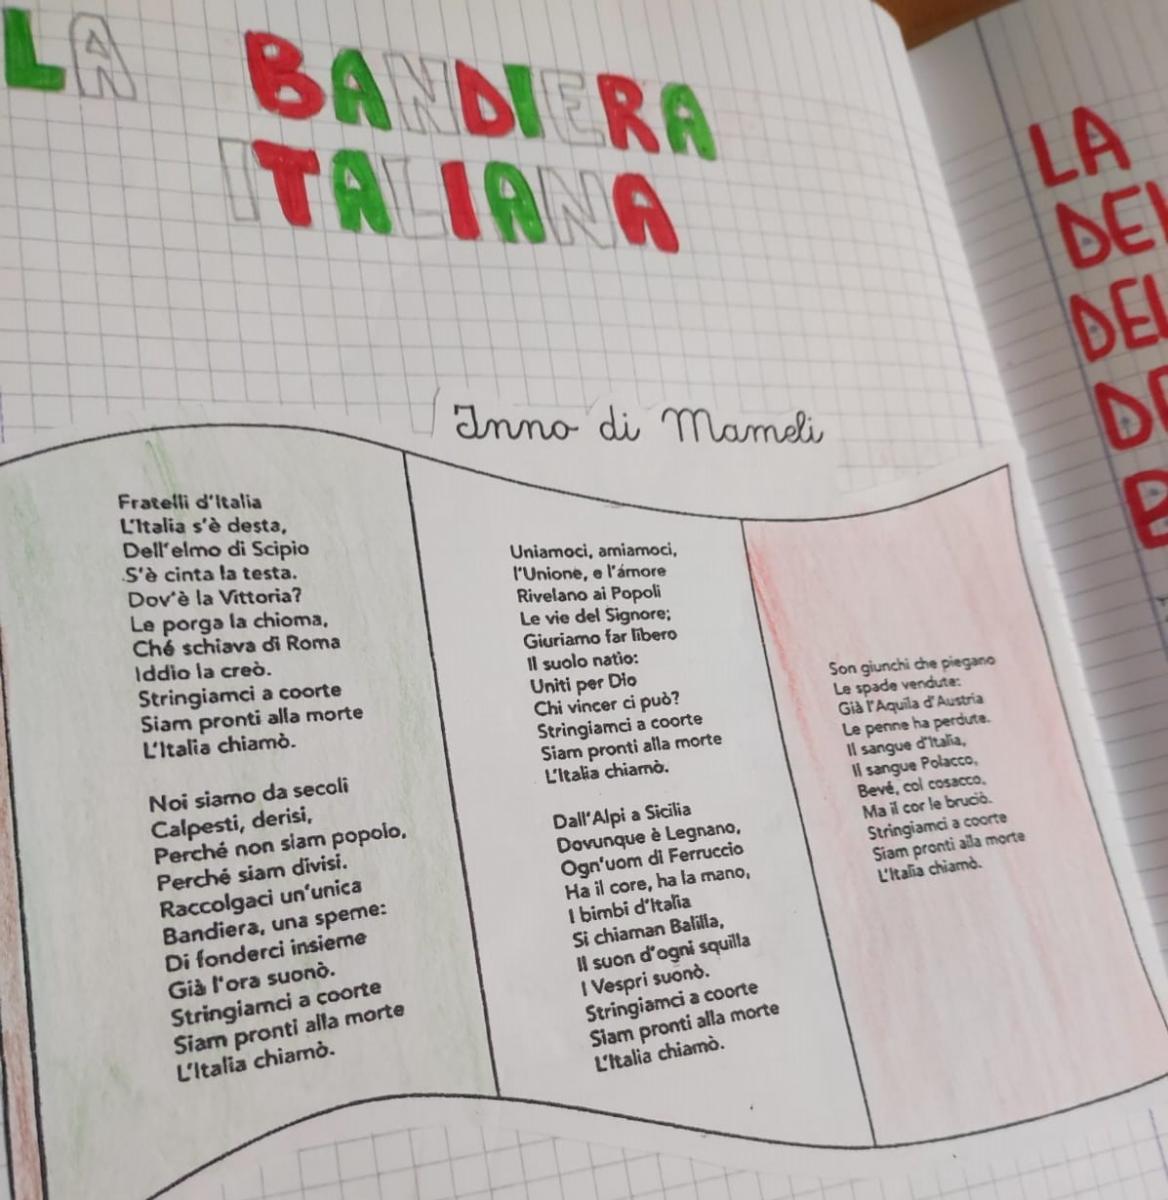 LA BANDIERA
ITALIANA
Inno di Mameli
Fratelli d'Italia
L'Italia s'è desta,
Dell'elmo di Scipio
S'è cinta la testa.
Dov'è la Vittoria?
Le porga la chioma,
Ché schiava di Roma
Iddio la creò.
Stringiamci a coorte
Siam pronti alla morte
L'Italia chiamò.
Noi siamo da secoli
Calpesti, derisi,
Perché non siam popolo,
Perché siam divisi.
Raccolgaci un'unica
Bandiera, una speme:
Di fonderci insieme
Già l'ora suonò.
Stringiamci a coorte
Siam pronti alla morte
L'Italia chiamò.
Uniamoci, amiamoci,
l'Unione, e l'amore
Rivelano ai Popoli
Le vie del Signore;
Giuriamo far libero
Il suolo natio:
Uniti per Dio
Chi vincer ci può?
Stringiamci a coorte
Siam pronti alla morte
L'Italia chiamò.
Dall'Alpi a Sicilia
Dovunque è Legnano,
Ogn'uom di Ferruccio
Ha il core, ha la mano,
I bimbi d'Italia
Si chiaman Balilla,
Il suon d'ogni squilla
I Vespri suonò.
Stringiamci a coorte
Siam pronti alla morte
L'Italia chiamò.
Son giunchi che piegano
Le spade vendute:
Già l'Aquila d'Austria
Le penne ha perdute.
Il sangue d'Italia,
Il sangue Polacco,
Bevé, col cosacco,
Ma il cor le bruciò.
Stringiamci a coorte
Siam pronti alla morte
L'Italia chiamò.
LA